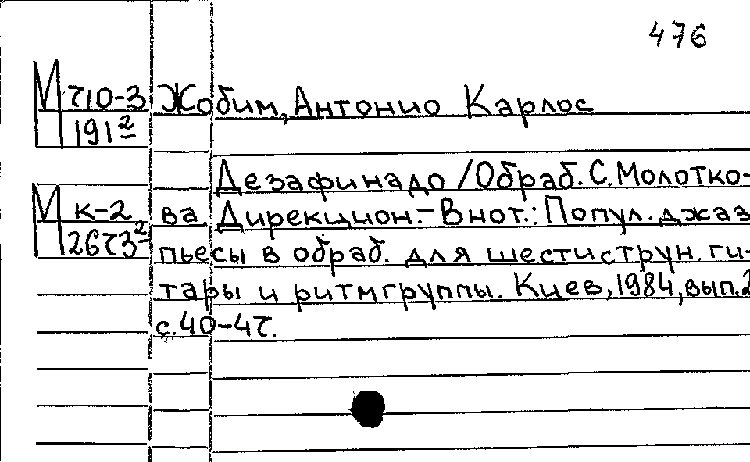 476
М 710-3 Жобим, Антонио Карлос
191²
Дезафинадо /Обраб. С. Молотко-
М К-2 ва. Дирекцион. - В нот.: Попул. джаз.
2673² пьесы в обраб. для шестиструн. ги-
тары и ритмгруппы. Киев, 1984, вып. 2
с. 40-47.